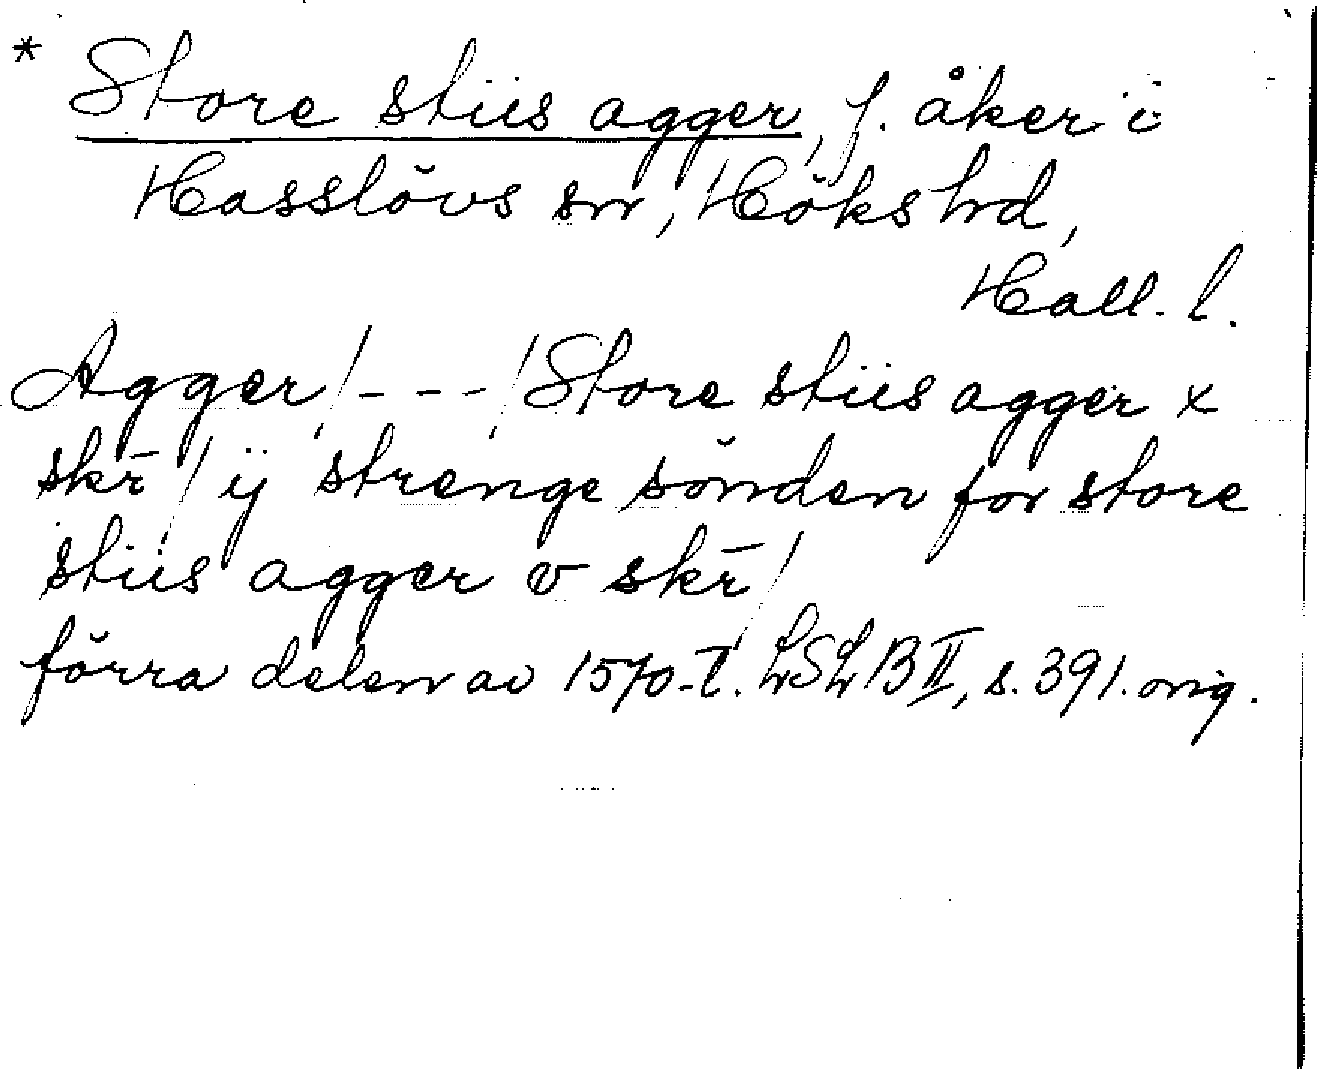 * Store stiis agger, f. åker i
Hasslövs sn, Höks hd,
Hall. l.
Agger / - - - / Store stiis agger x
skr̄ / ij strenge sönden for store
stiis agger v skr̄ /
förra delen av 1570-t. LSLB II, s. 391. orig.